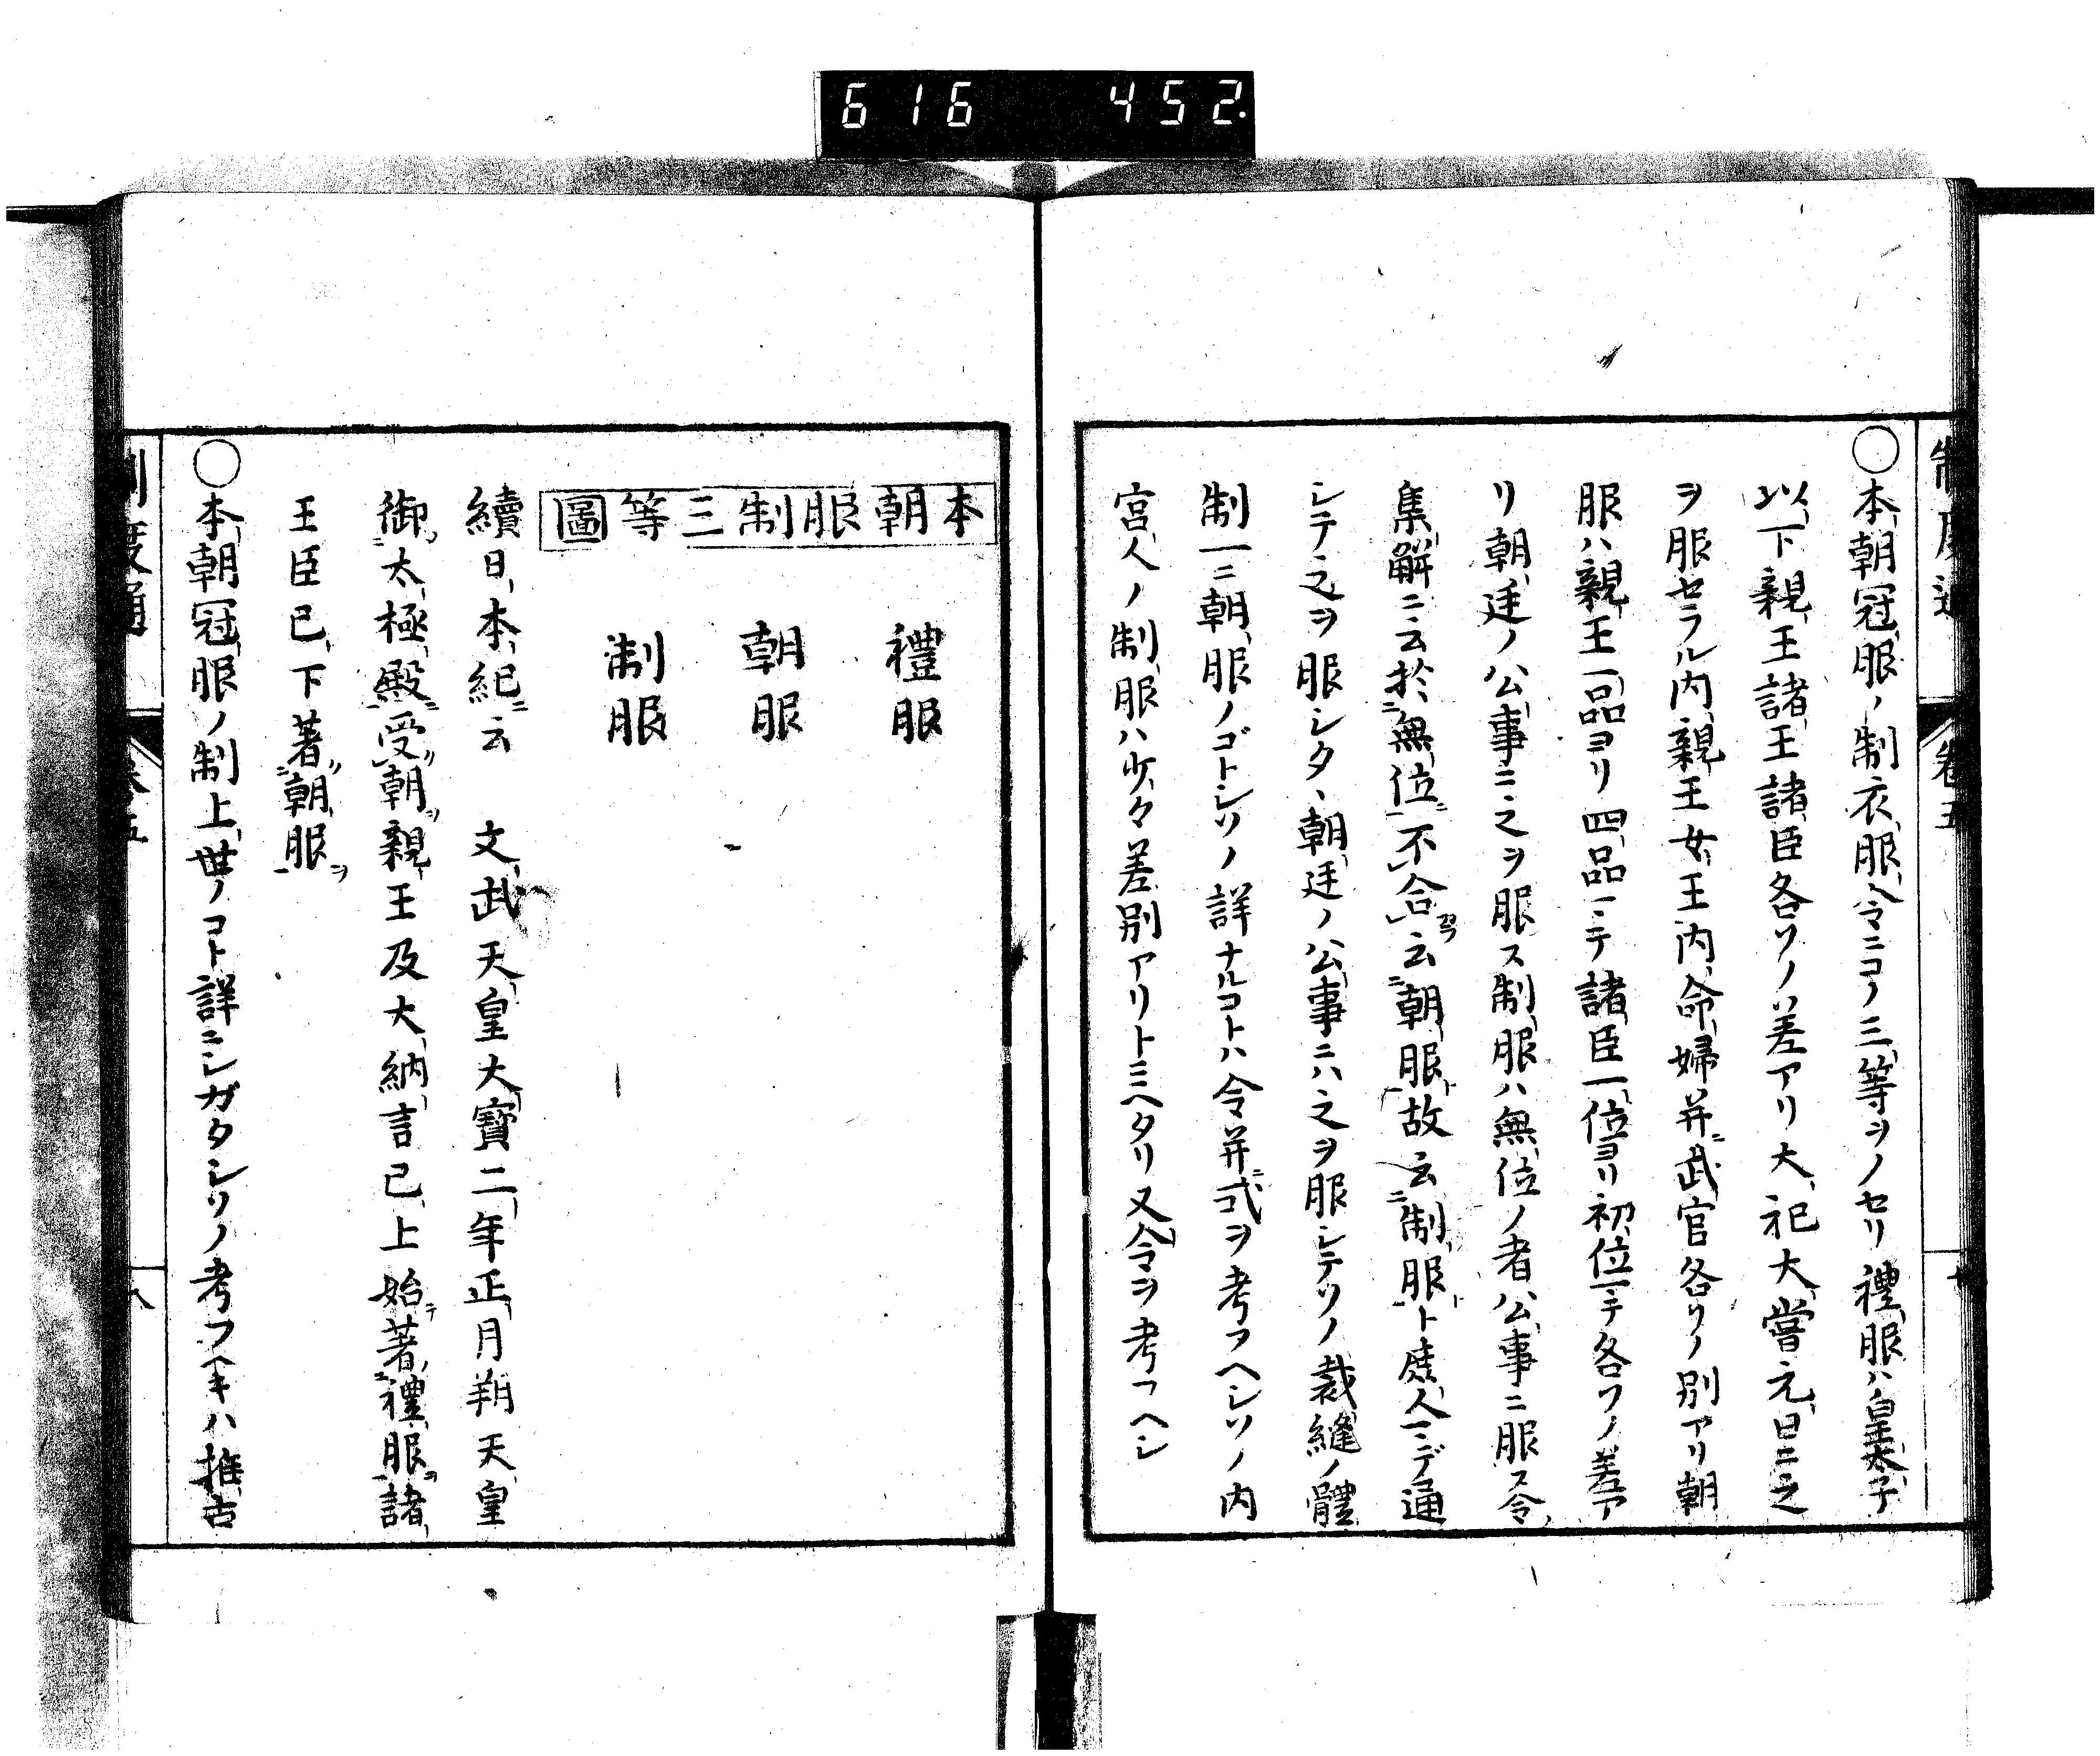 616 452.
制度通 卷五
○本朝冠服ノ制衣服令ニコノ三等ヲノセリ禮服ハ皇太子
以下親王諸王諸臣各ソノ差アリ大祀大嘗元日ニ之
ヲ服セラル内親王女王内命婦并ニ武官各ソノ別アリ朝
服ハ親王一品ヨリ四品ニテ諸臣一位ヨリ初位ニテ各ソノ差ア
リ朝廷ノ公事ニ之ヲ服ス制服ハ無位ノ者公事ニ服ス令
集解ニ云於無位不合云朝服故云制服ト庶人ニデ通
シテ之ヲ服シタヽ朝廷ノ公事ニハ之ヲ服シテソノ裁縫ノ體
制一ニ朝服ノゴトシソノ詳ナルコトハ令并ニ式ヲ考フヘシソノ内
宮人ノ制服ハ少々差別アリトミヘタリ又令ヲ考フヘシ
本朝服制三等圖
禮服
朝服
制服
續日本紀ニ云 文武天皇大寶二年正月朔天皇
御大極殿受朝親王及大納言已上始著禮服諸
王臣已下著朝服
○本朝冠服ノ制上世ノコト詳ニシガタシソノ考フヘキハ推古
制度通 卷五 八